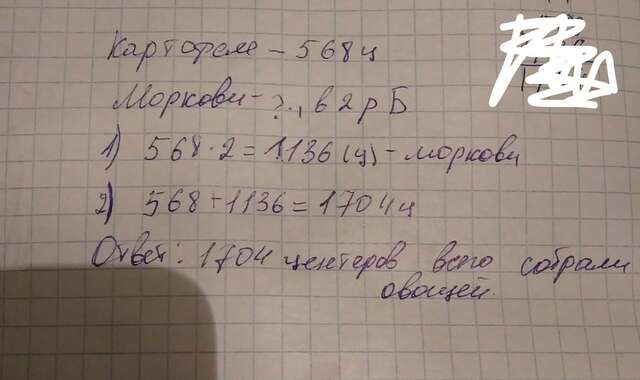 Картофеле - 568 ц
Моркови - ?., в 2 р Б
1) 568 · 2 = 1136 (ц) - моркови
2) 568 + 1136 = 1704 ц
Ответ: 1704 центеров всего собрали
овощей.